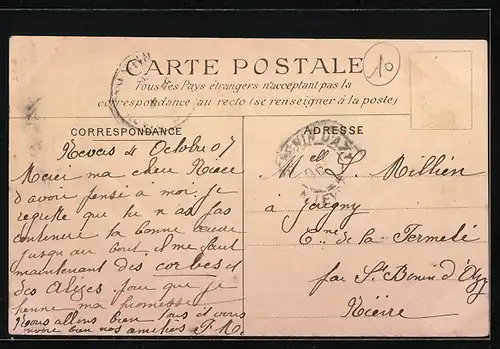 CARTE POSTALE
Tous les Pays étrangers n'acceptent pas la
correspondance au recto (se renseigner à la poste)
10
CORRESPONDANCE
ADRESSE
Nevers 4 Octobre 07
Merci ma chère Nièce
d'avoir pensé à moi je
regrette que tu n'as pas
la bonne
jusqu'au bout il me faut
maintenant des
des que je
tienne ma promesse
Nous allons bien tous et vous
bien nos amitiés
Melle L. Millien
à Jaugny
Cne de la Fermeté
par St Benin d'Azy
Nièvre